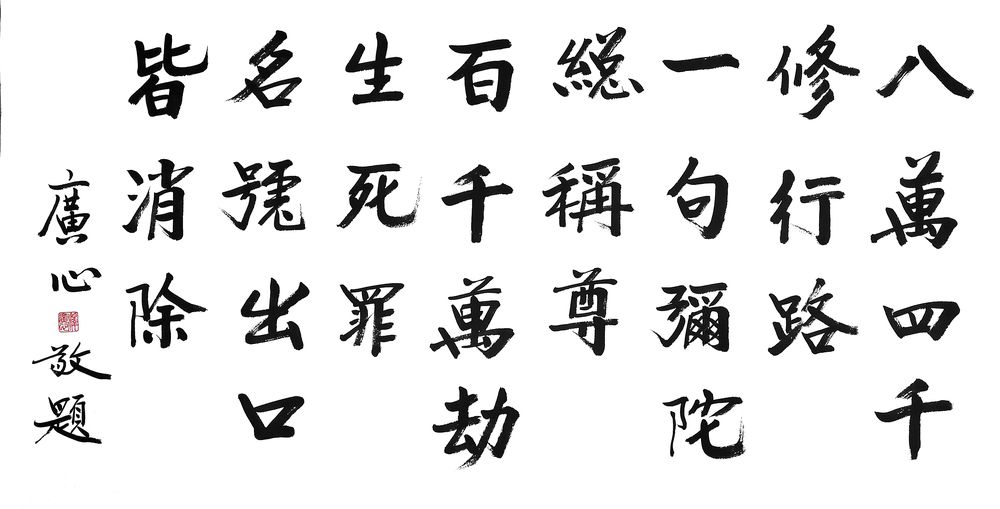 八萬四千
修行路
一句彌陀
総稱尊
百千萬劫
生死罪
名號出口
皆消除
廣心敬題